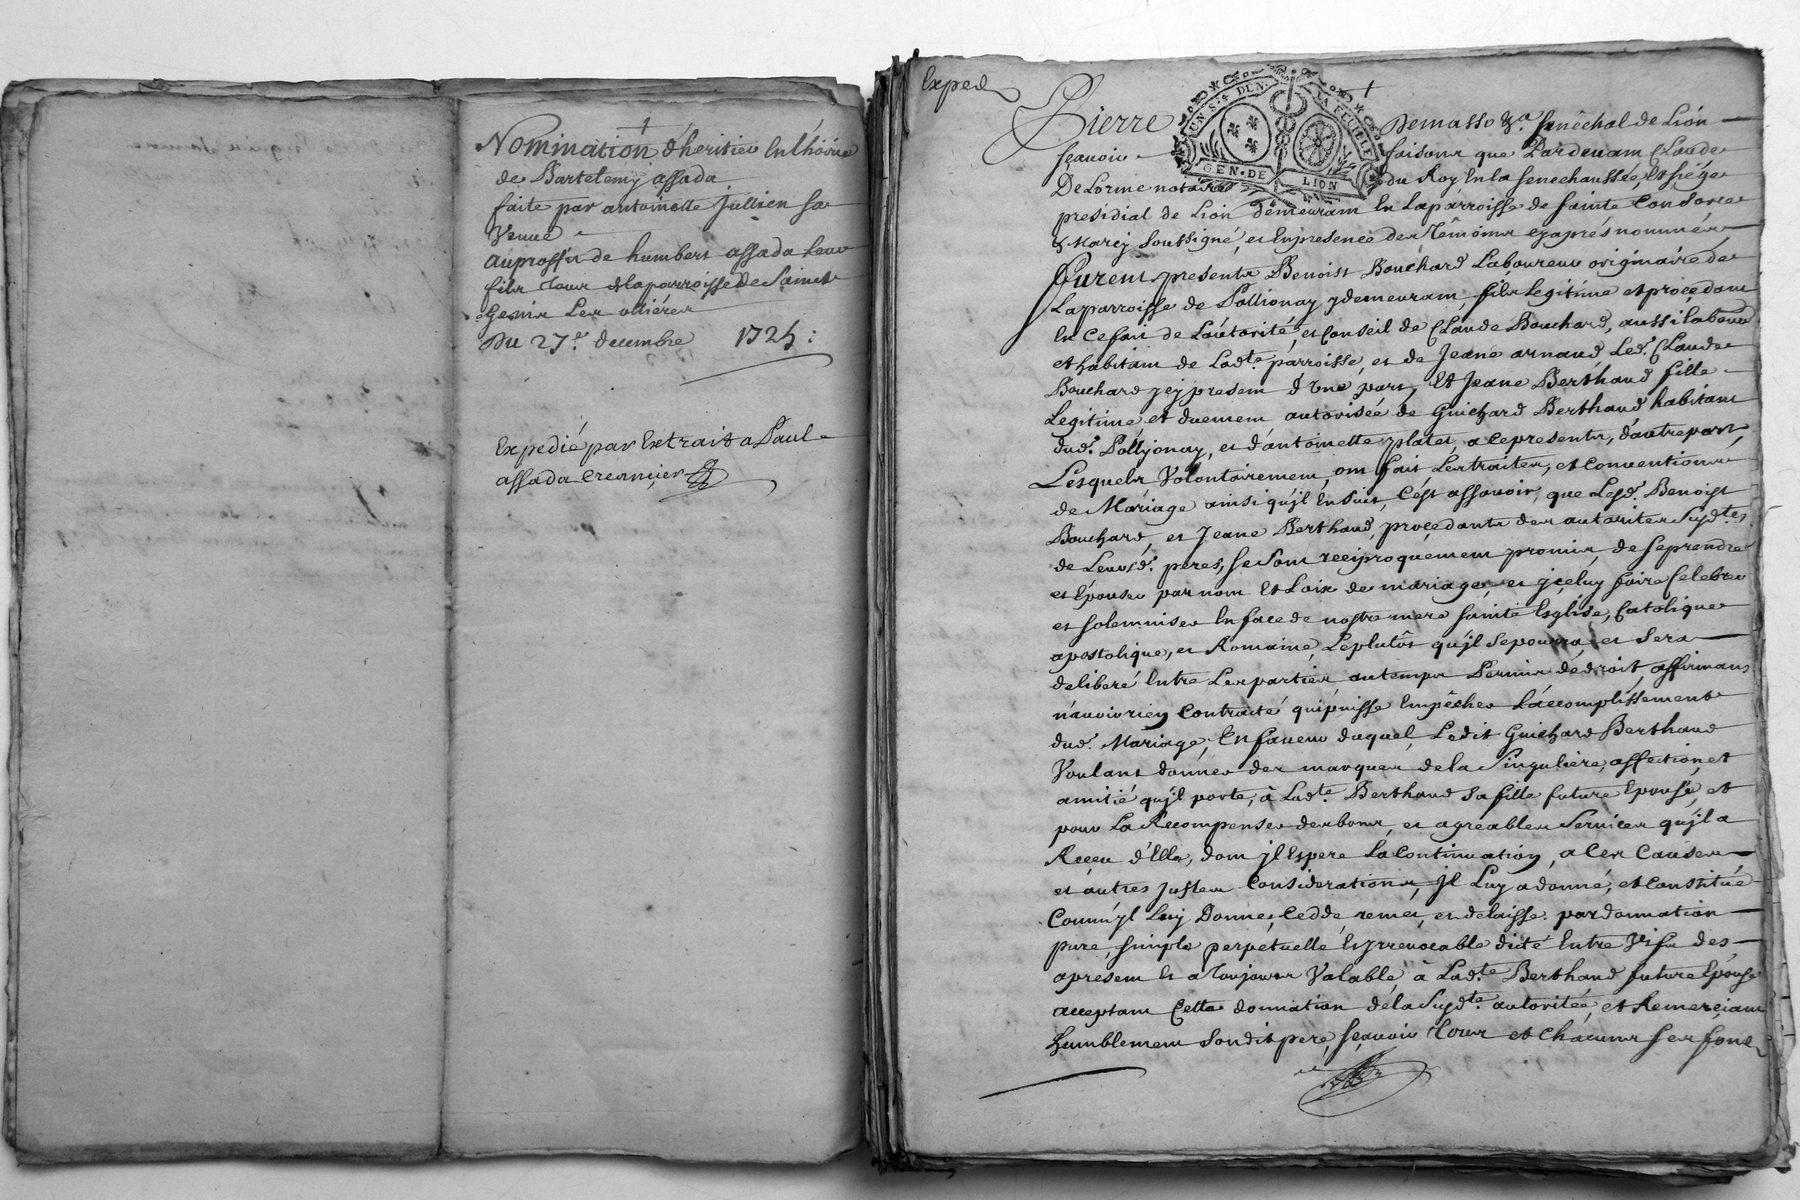 Nomination d'heritier En L'hoirie
de Bartelemy assada
faite par antoinette Jullien sa
Veuve
au proffit de humbert assada leur
fils Tous de la parroisse De Saint
Genis Les ollieres
Du 27.e decembre 1725 :
Expedié par Extrait a Paul
assada creancier
Exped
Pierre Demasso &.a senechal de Lion
sçavoir faisons que Pardevant Claude
De Lorme notaire du Roy En la senechaussée, Et siége
presidial de Lion demeurant En La parroisse de sainte Consorce
& Marcy soussigné, et En presence des Témoins cy aprés nommés,
Furent presents Benoist Bouchard Laboureur originaire de
La parroisse de Pollionay y demeurant, fils Legitime et proçedant
En ce fait de L'autorité, et Conseil de Claude Bouchard, aussi laboureur
et habitant de Lad.te parroisse, et de Jeane arnaud Led. Claude
Bouchard icy present d'Une part, Et Jeane Berthaud fille
Legitime et duement autorisée de Guichard Berthaud habitant
dud. Pollyonay, et d'antoinette platet, a ce presents, d'autre part,
Lesquels Volontairement ont fait Les traites, et Conventions
de Mariage ainsi qu'jl En suit, C'ést assavoir, que Lesd. Benoist
Bouchard, et Jeane Berthaud, proçedants des autorites susd.tes
de Leursd. peres, se sont reciproquement promis, de se prendre
et Epouser par nom Et Loix de mariage, et jçeluy faire Celebrer
et solemniser En face de nostre mere sainte Esglise, Catolique
apostolique, et Romaine, Le plutôt qu'jl se pourra et sera
deliberé Entre Les parties au temps Permis de droit, affirmans
n'avoir rien Contracté qui puisse Empêcher L'accomplissement
dud. Mariage, En faveur duquel, Ledit Guichard Berthaud
Voulant donner des marques de la singulière, affection et
amitié qu'jl porte, à Lad.te Berthaud sa fille future Epouse, et
pour La Recompenser des bons, et agreables services qu'jl a
Receu d'Elle, dont jl Espere La Continuation, a Ces Causes
et autres Justes Considerations, Jl Luy a donné, et Constitué
Comm'jl Luy Donne, Cedde, remet, et delaisse par donnation
pure, simple perpetuelle Et jrrevocable dité Entre Vifs des
apresent Et a Toujours Valable, à Lad.te Berthaud future Epouse
acceptant Cette donnation de la susd.te autoritée, et Remerciant
humblement sondit pere, sçavoir Tous et Chacuns ses fonds
UN S. 4 DEN. LA FEUILLE
GEN. DE LION